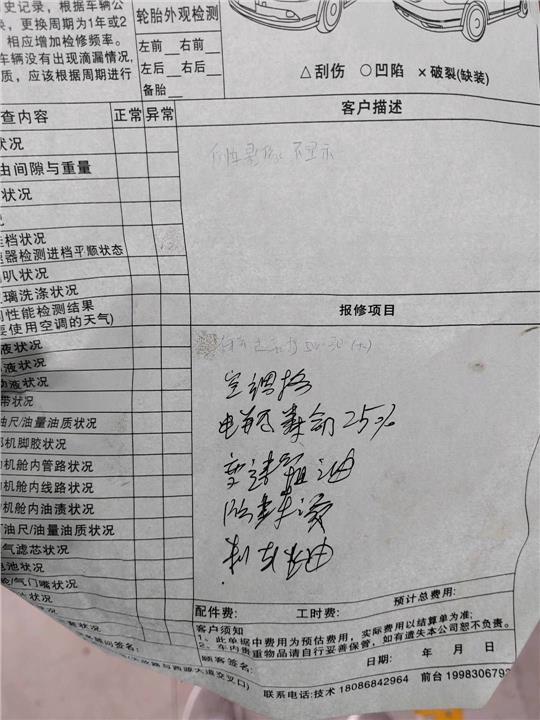 史记录，根据车辆公
录，更换周期为1年或2
相应增加检修频率。
车辆没有出现滴漏情况，
质，应该根据周期进行
轮胎外观检测
左前__右前__
左后__右后__
备胎__
△刮伤 ○凹陷 ×破裂(缺装)
查内容 正常 异常
客户描述
状况
由间隙与重量
状况
不显示
挂档状况
速器检测进档平顺状态
喇叭状况
玻璃洗涤状况
性能检测结果
要使用空调的天气)
报修项目
液状况
液状况
动液状况
带状况
油尺/油量油质状况
机脚胶状况
机舱内管路状况
机舱内线路状况
机舱内油渍状况
油尺/油量油质状况
气滤芯状况
电池状况
气门嘴状况
空调格
电瓶寿命25%
变速箱油
防冻液
刹车油
预计总费用:
配件费: 工时费:
客户须知
1、此单据中费用为预估费用，实际费用以结算单为准;
2、车内贵重物品请自行妥善保管，如有遗失本公司恕不负责。
顾客签名: 日期: 年 月 日
大道交叉口)
联系电话:技术 18086842964 前台 1998306793